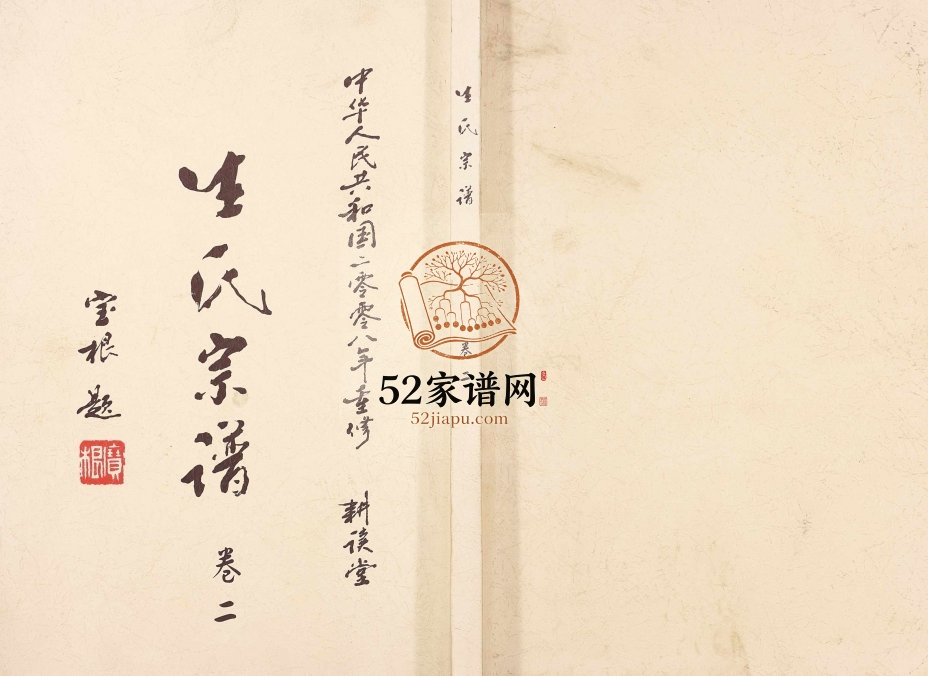 生氏宗谱
卷
中华人民共和国二零零八年重修 耕读堂
生氏宗谱 卷二
宝根题
寶根
52家谱网
52jiapu.com